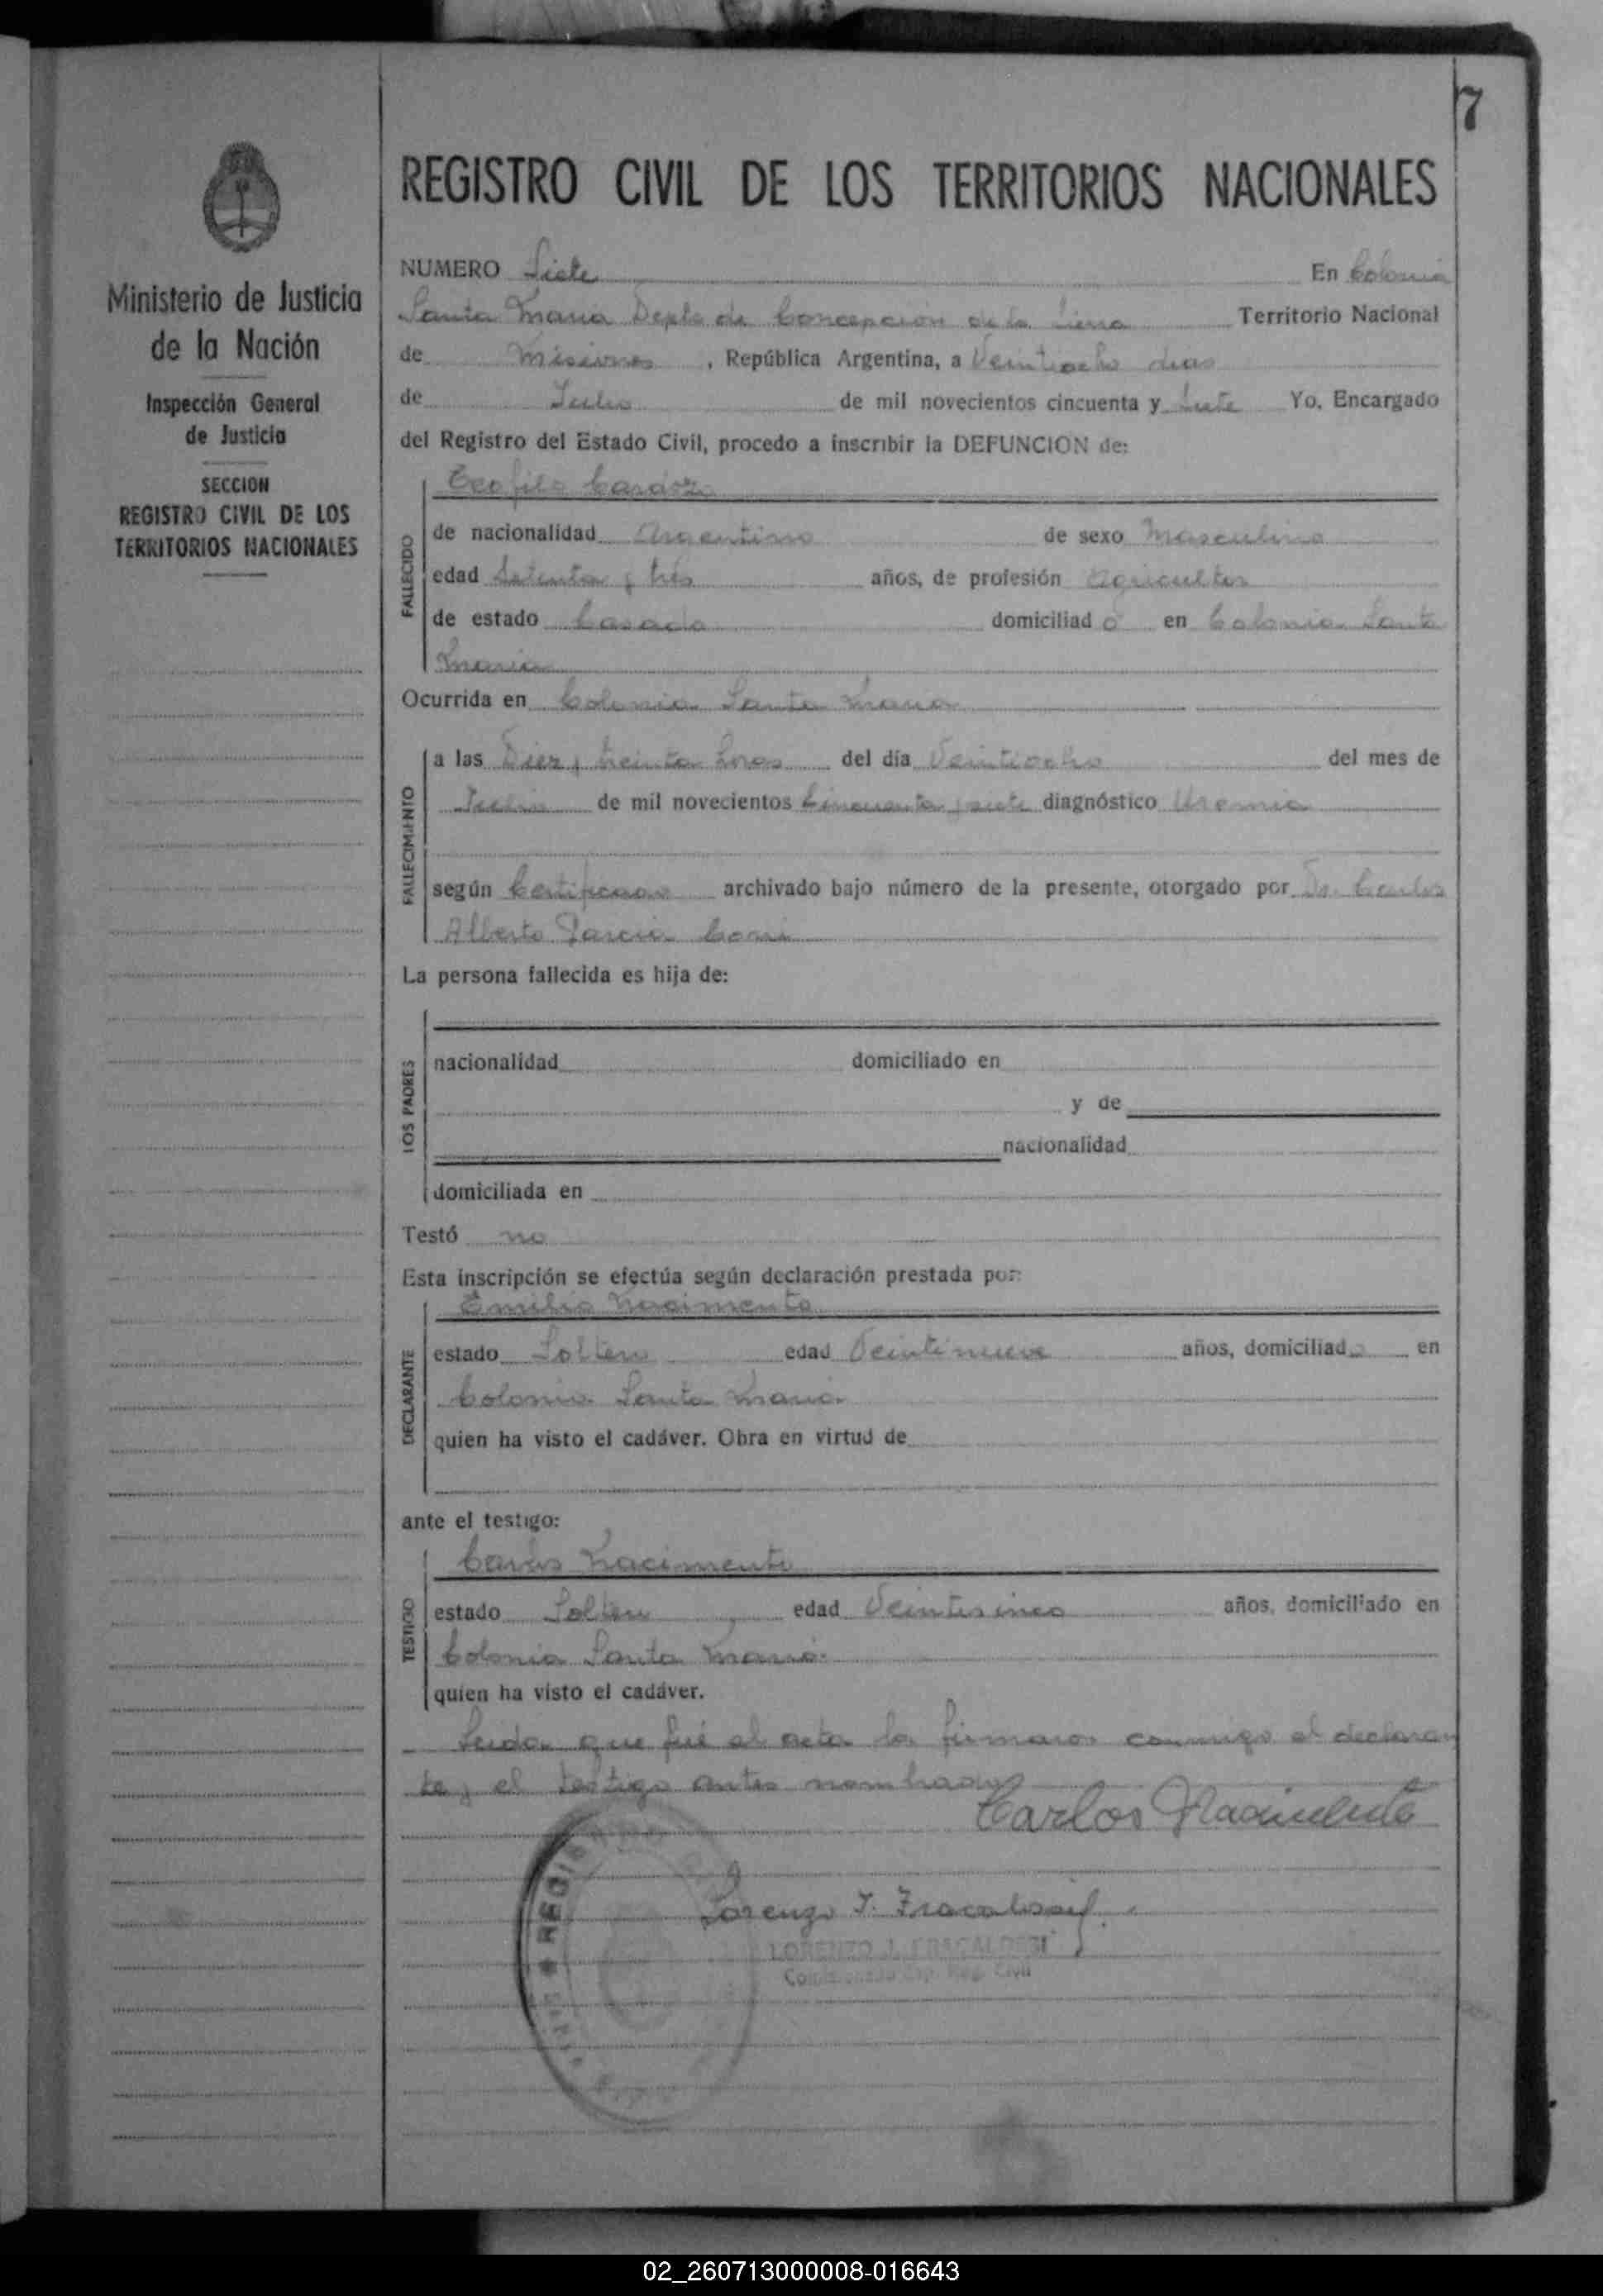 7
Ministerio de Justicia
de la Nación
Inspección General
de Justicia
SECCION
REGISTRO CIVIL DE LOS
TERRITORIOS NACIONALES
REGISTRO CIVIL DE LOS TERRITORIOS NACIONALES
NUMERO Siete En Colonia
Santa Maria Depto de Concepcion de la Sierra Territorio Nacional
de Misiones, República Argentina, a Veintiocho dias
de Julio de mil novecientos cincuenta y siete Yo, Encargado
del Registro del Estado Civil, procedo a inscribir la DEFUNCION de:
Teofilo Cardozo
FALLECIDO
de nacionalidad Argentino de sexo Masculino
edad Setenta y tres años, de profesión Agricultor
de estado Casado domiciliado en Colonia Santa
Maria
Ocurrida en Colonia Santa Maria
FALLECIMIENTO
a las Diez y treinta horas del día Veintiocho del mes de
Julio de mil novecientos Cincuenta y siete diagnóstico Uremia
según Certificado archivado bajo número de la presente, otorgado por Dr. Carlos
Alberto Garcia
La persona fallecida es hija de:
LOS PADRES
nacionalidad domiciliado en
y de
nacionalidad
domiciliada en
Testó no
Esta inscripción se efectúa según declaración prestada por:
Emilio Nacimento
DECLARANTE
estado Soltero edad Veintinueve años, domiciliado en
Colonia Santa Maria
quien ha visto el cadáver. Obra en virtud de
ante el testigo:
Carlos Nacimento
TESTIGO
estado Soltero edad Veintisinco años, domiciliado en
Colonia Santa Maria
quien ha visto el cadáver.
Leida que fué el acta la firmaron conmigo el declaran
te y el testigo antes nombrado
Carlos Nacimento
Lorenzo J. Fracalossi
LORENZO J. FRACALOSSI
Reg. Civil
REGIS
02_260713000008-016643